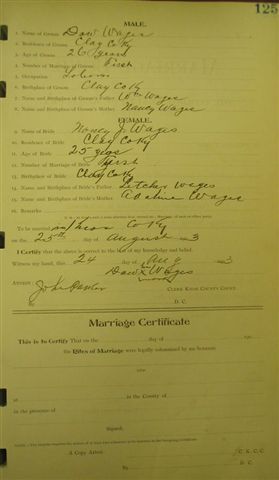 125
MALE.
1. Name of Groom Daw Wages
2. Residence of Groom Clay Co Ky
3. Age of Groom 26 years
4. Number of Marriage of Groom First
5. Occupation
6. Birthplace of Groom Clay Co Ky
7. Name and Birthplace of Groom's Father Wm Wages
8. Name and Birthplace of Groom's Mother Nancy Wages
FEMALE.
9. Name of Bride Nancy J Wages
10. Residence of Bride Clay Co Ky
11. Age of Bride 25 years
12. Number of Marriage of Bride First
13. Birthplace of Bride Clay Co Ky
14. Name and Birthplace of Bride's Father Letcher Wages
15. Name and Birthplace of Bride's Mother Adaline Wages
16. Remarks
To be married at Knox Co Ky
on the 25th day of August 3
I Certify that the above is correct to the best of my knowledge and belief.
Witness my hand, this 24 day of Aug 3
Daw x Wages
Attest:
Clerk Knox County Court.
By D. C.
Marriage Certificate
This is to Certify That on the day of
the Rites of Marriage were legally solemnized by me between
and
at in the County of
in the presence of
Signed,
A Copy Attest: C. K. C. C.
By D. C.